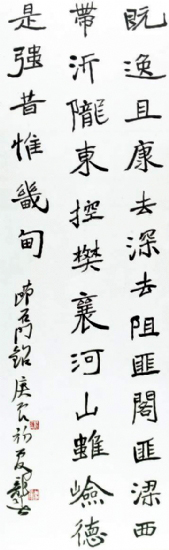 既逸且康去深去阻匪閣匪梁西
帶沂隴東控樊襄河山雖嶮德
是强昔惟畿甸
節石門銘庚寅初夏